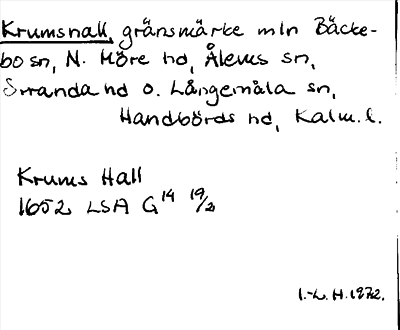 Krumshall, gränsmärke mln Bäcke-
bo sn, N. Möre hd, Ålems sn,
Stranda hd o. Långemåla sn,
Handbörds hd, Kalm. l.
Krums Hall
1652 LSA G14 19/2
I.-L. H. 1972.